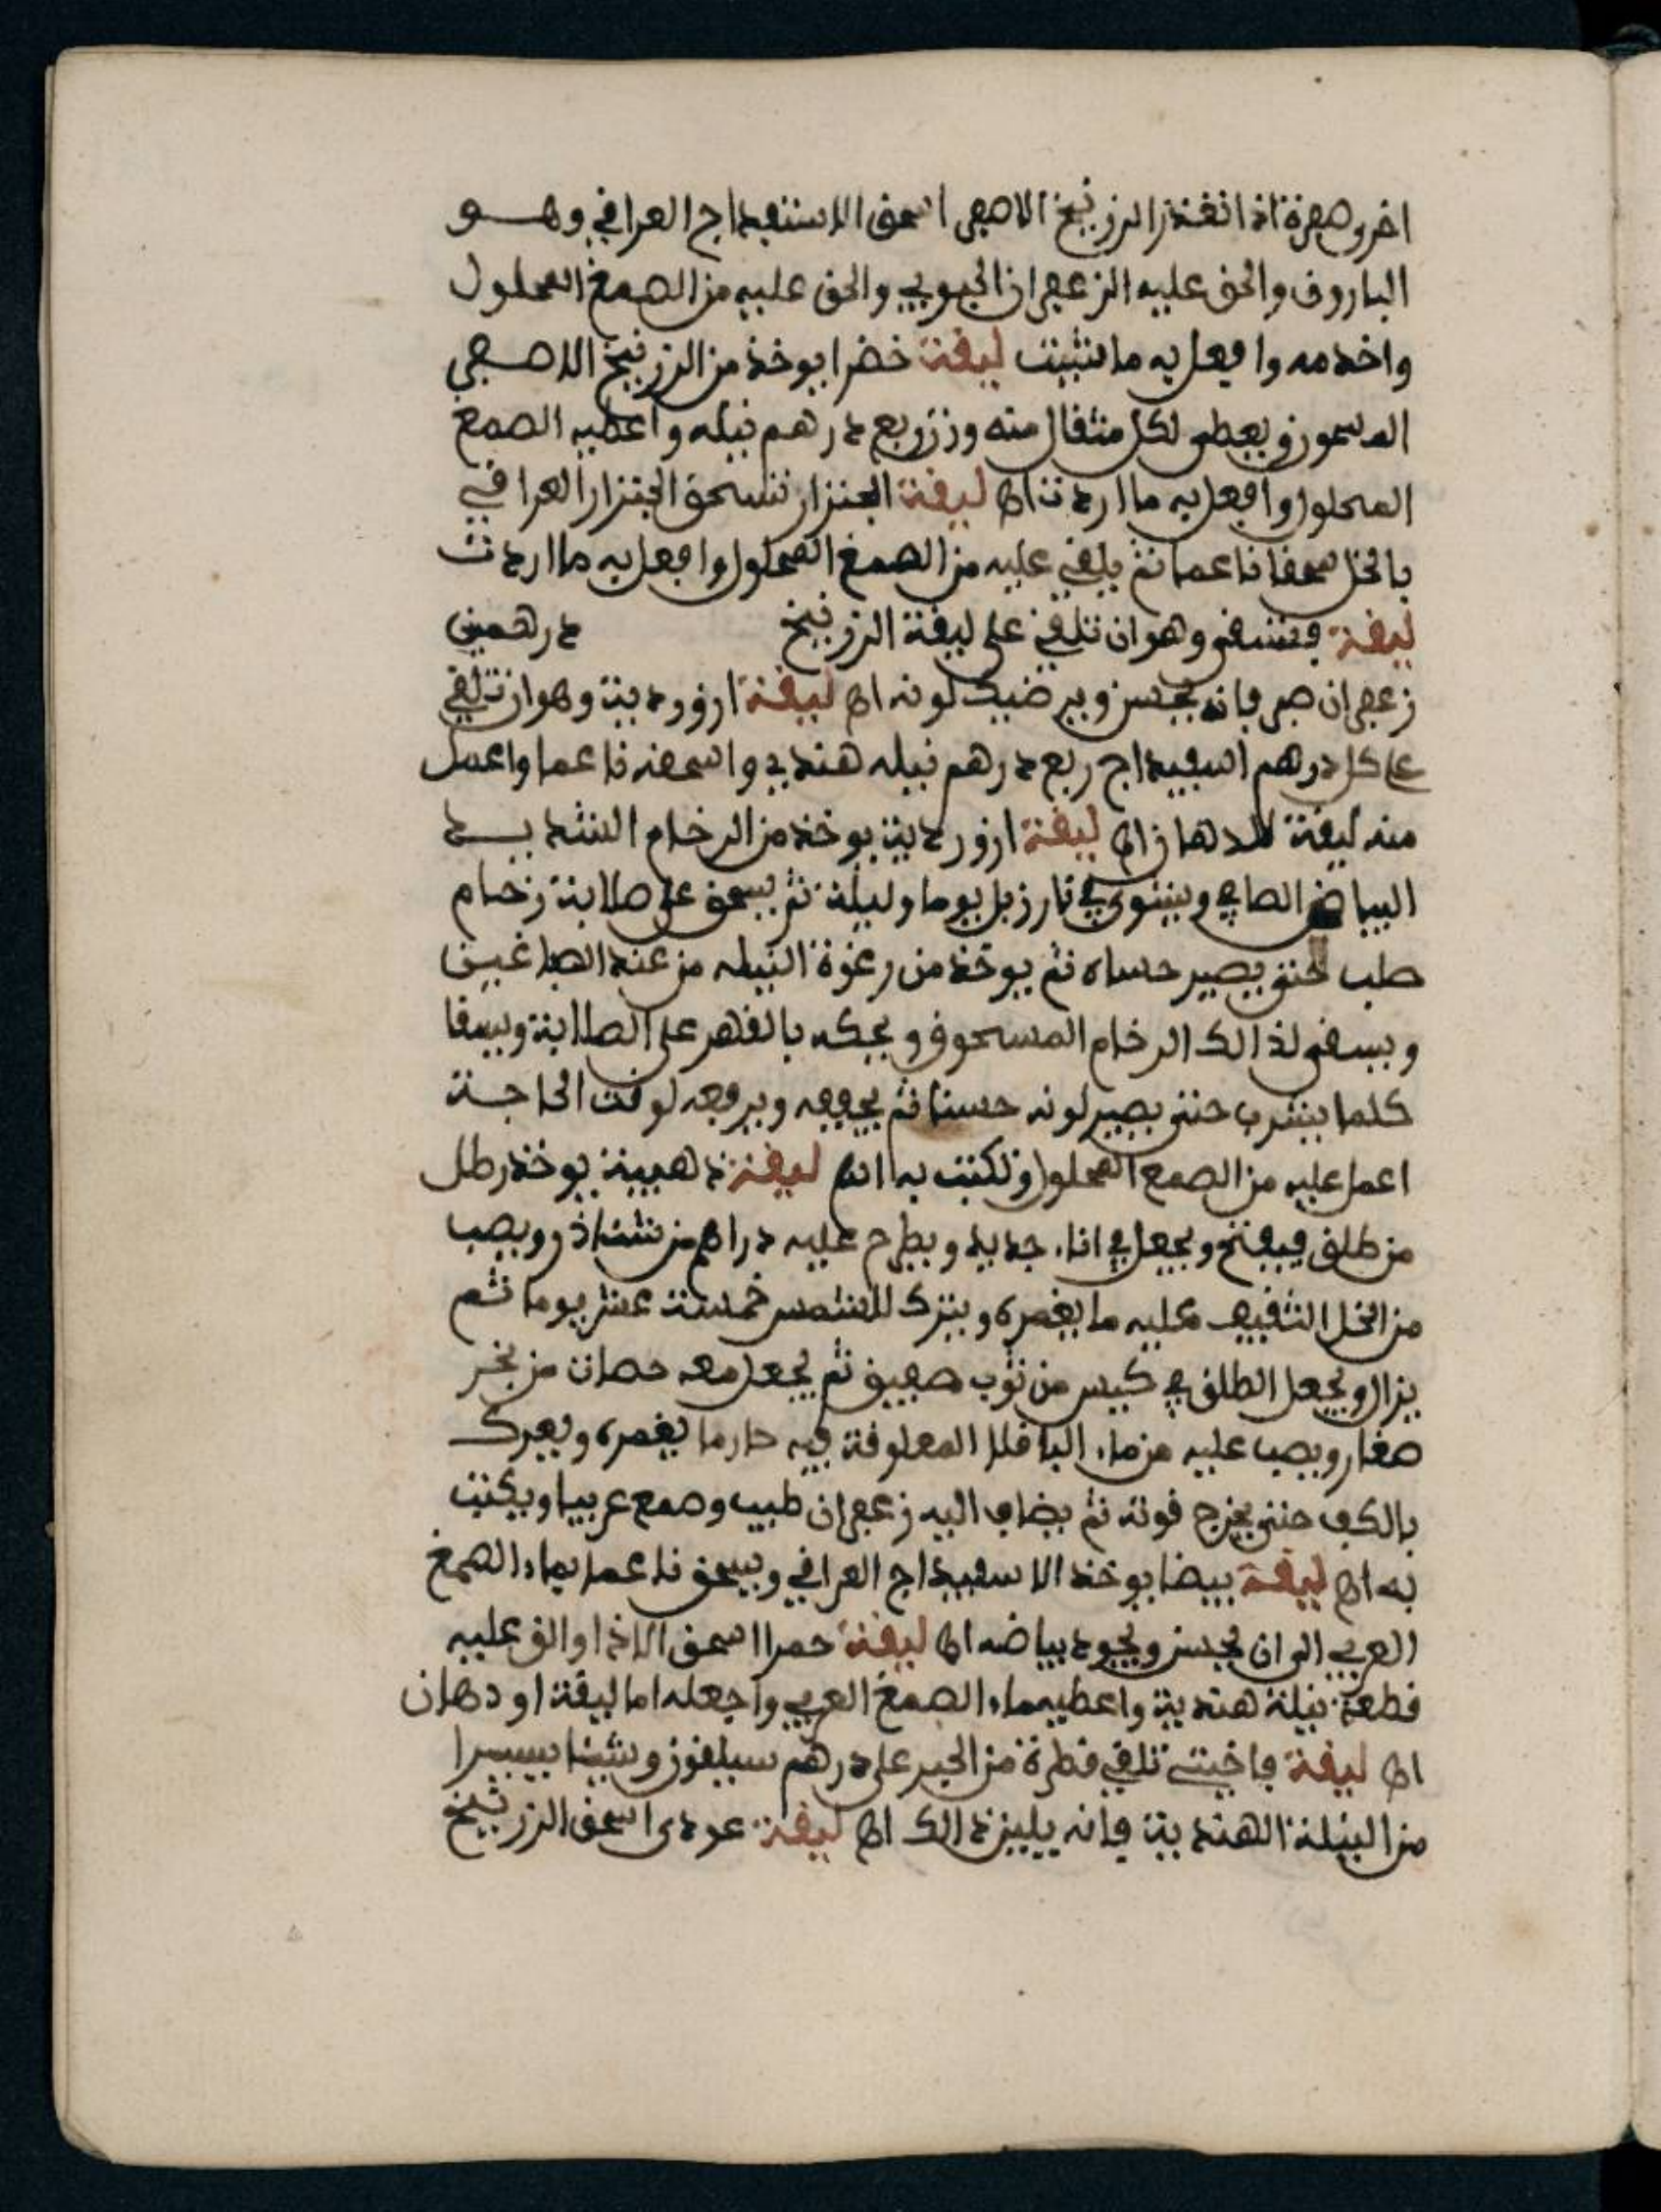 اخر وصفرة اذا تعذر الزرنيخ الاصفر اسحق الاستفيداج العراقي وهو
الباروق والحق عليه الزعفران الجبوبي والحق عليه من الصمغ المحلول
واخدمه وافعل به ما شيت ليقة خضرا يوخذ من الزرنيخ الاصفر
المسحوق ويعطى لكل مثقال منه وزن ربع درهم نيله واعطيه الصمغ
المحلول وافعل به ما اردت اﻫ ليقة الجنزار تسحق الجنزار العراقي
بالخل سحقا ناعما ثم يلقي عليه من الصمغ المحلول وافعل به ما اردت
ليقة فستقي وهو ان تلقي على ليقة الزرنيخ درهمين
زعفران صرف فانه يحسن ويرضيك لونه اﻫ ليقة ازوردية وهو ان تلقي
على كل درهم اسفيداج ربع درهم نيله هندي واسحقه ناعما واعمل
منه ليقة للدهان اﻫ ليقة ازوردية يوخذ من الرخام الشديد
البياض الصافي ويشوى في نار زبل يوما وليلة ثم يسحق على صلابة رخام
صلب حتى يصير حساه ثم يوخذ من رغوة النيله من عند الصباغين
ويسقى لذالك الرخام المسحوق ويحكه بالفهر على الصلابة ويسقا
كلما يشرب حتى يصير لونه حسنا ثم يجففه ويرفعه لوقت الحاجة
اعمل عليه من الصمغ المحلول وتكتب به اﻫ ليقة ذهبية يوخذ رطل
من طلق فيفتح ويجعل في اناء جديد ويطرح عليه دراهم من نشاذر ويصب
من الخل الثقيف عليه ما يغمره ويترك للشمس خمسة عشر يوما ثم
يزال ويجعل الطلق في كيس من ثوب صفيق ثم يجعل معه حصات من بحر
صغار ويصب عليه من ماء الباقلا المعلوقة فيه حار ما يغمره ويعرك
بالكف حتى يخرج قوته ثم يضاف اليه زعفران طيب وصمغ عربيا ويكتب
به اﻫ ليقة بيضا يوخذ الاسفيداج العراقي ويسحق ناعما بماء الصمغ
العربي الى ان يحسن ويجود بياضه اﻫ ليقة حمرا اسحق الاذا والق عليه
قطعة نيلة هندية واعطيه ماء الصمغ العربي واجعله اما ليقة او دهان
اﻫ ليقة فاختي تلقي قطرة من الحبر على درهم سيلقون وشيا يسيرا
من النيلة الهندية فانه يليزذالك اﻫ ليقة عودي اسحق الزرنيخ